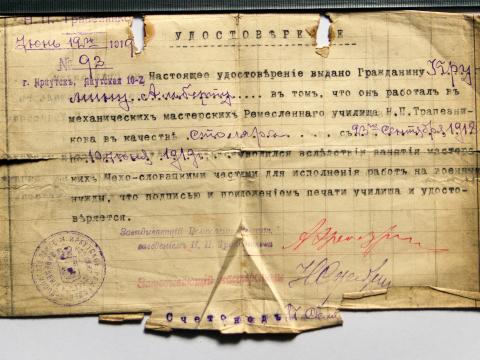 Н. П. Трапезник
Iюнь 19го 1919
УДОСТОВѢРЕНIЕ
№ 92
г. Иркутск, Якутская 10-2
Настоящее удостовѣренiе выдано Гражданину Кру-
мину Альберту въ томъ, что онъ работалъ въ
механическихъ мастерскихъ Ремесленнаго училища Н.П.Трапезни-
кова въ качествѣ столяра съ сентября 1918
по 19 iюня 1919г. уволился вслѣдствiи занятiя мастер-
скихъ Чехо-словацкими частями для исполненiя работъ на военныя
нужды, что подписью и приложенiемъ печати училища и удосто-
вѣряется.
Завѣдывающiй
заведенiем Н. П. Трапезникова
Завѣдывающiй мастерскими
Счетоводъ